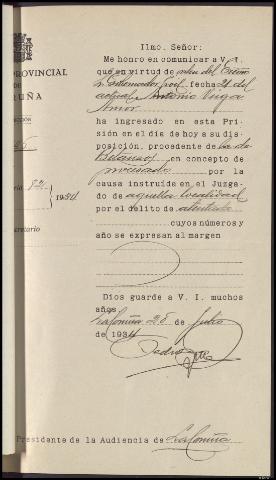 Ilmo. Señor:
Me honro en comunicar a V. I.
que en virtud de orden del Excmo
Sr. Gobernador Civil, fecha 21 del
actual, Antonio Veiga
Amor
ha ingresado en esta Pri-
sión en el día de hoy a su dis-
posición, procedente de la de
Betanzos en concepto de
procesado por la
causa instruida en el Juzga-
do de aquella localidad
por el delito de atentado
cuyos números y
año se expresan al margen
Dios guarde a V. I. muchos
años.
La Coruña 25 de Julio
de 1934
Pedro
PROVINCIAL
DE
UÑA
82 / 1934
cretario
Presidente de la Audiencia de La Coruña